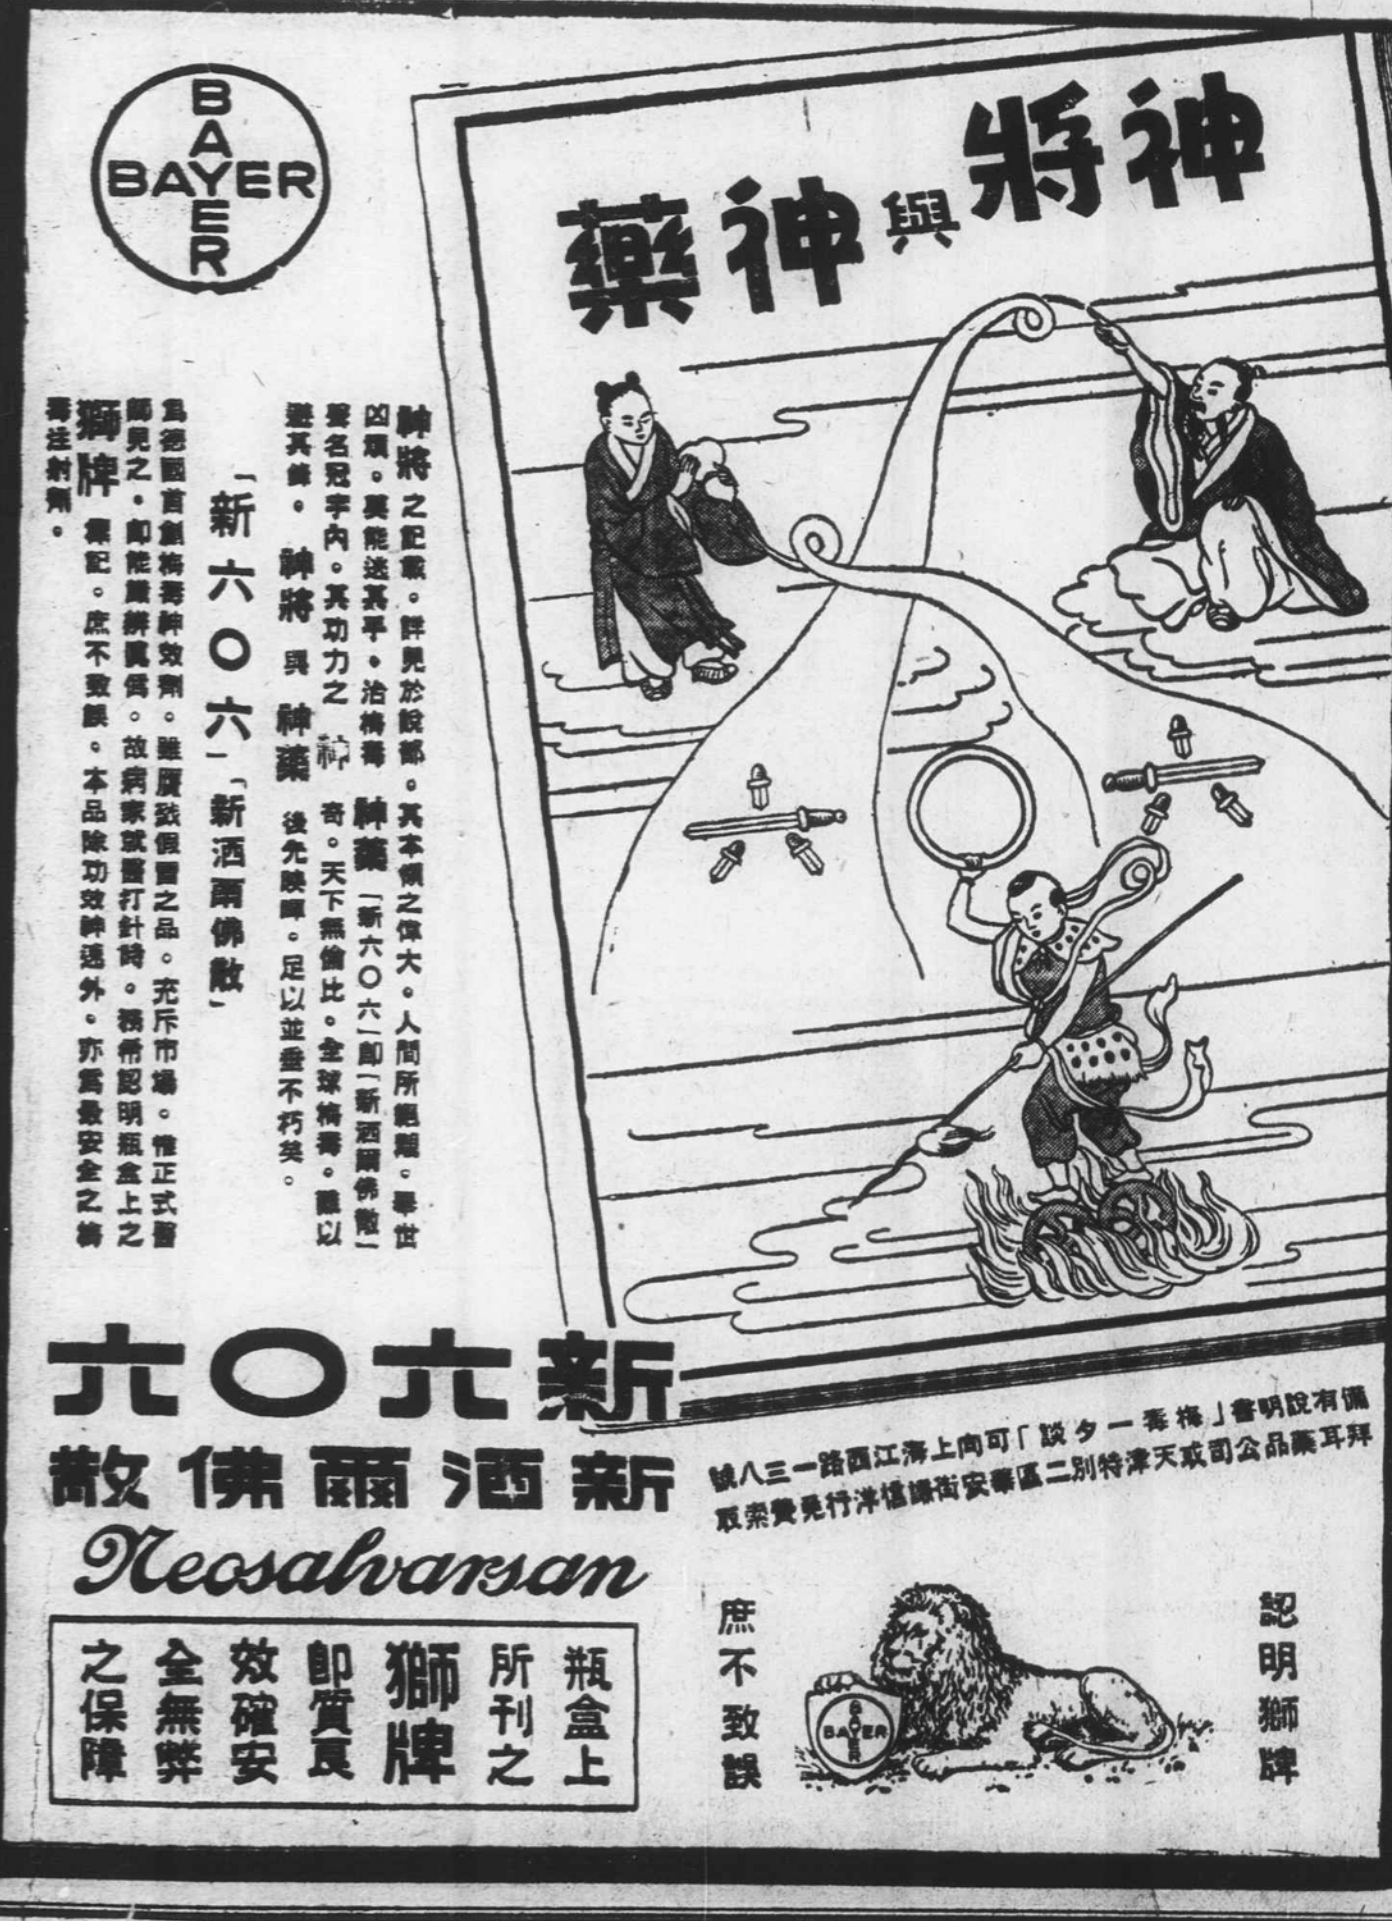 BAYER
BAYER
神將與神藥
神將之記載。詳見於說部。其本領之偉大。人間所絕觀。舉世
凶頑。莫能逃其手。治梅毒 神藥「新六〇六」即「新洒爾佛散」
聲名冠宇內。其功力之神奇。天下無倫比。全球梅毒。難以
避其鋒。神將 與 神藥 後先映暉。足以並垂不朽矣。
「新六〇六」「新洒爾佛散」
爲德國首創梅毒神效劑。雖贋武假冒之品。充斥市場。惟正式醫
師見之。即能嚴辨眞僞。故病家就醫打針時。務希認明瓶盒上之
獅牌 標記。庶不致誤。本品除功效神速外。亦爲最安全之梅
毒注射劑。
新六〇六
新洒爾佛散
Neosalvarsan
瓶盒上
所刊之
獅牌
即質良
效確安
全無弊
之保障
備有說明書「梅毒一夕談」可向上海江西路一三八號
拜耳藥品公司或天津特別二區華安街謙信洋行免費索取
認明獅牌
庶不致誤
BAYER
BAYER